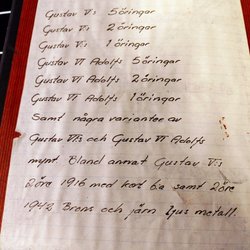 Gustav V:s 5 öringar
Gustav V:s 2 öringar
Gustav V:s 1 öringar
Gustav VI Adolfs 5 öringar
Gustav VI Adolfs 2 öringar
Gustav VI Adolfs 1 öringar
Samt några varianter av
Gustav V:s och Gustav VI Adolfs
mynt. Bland annat Gustav V:s
2 öre 1916 med kort 6:a samt 2 öre
1942 Brons och järn ljus metall.